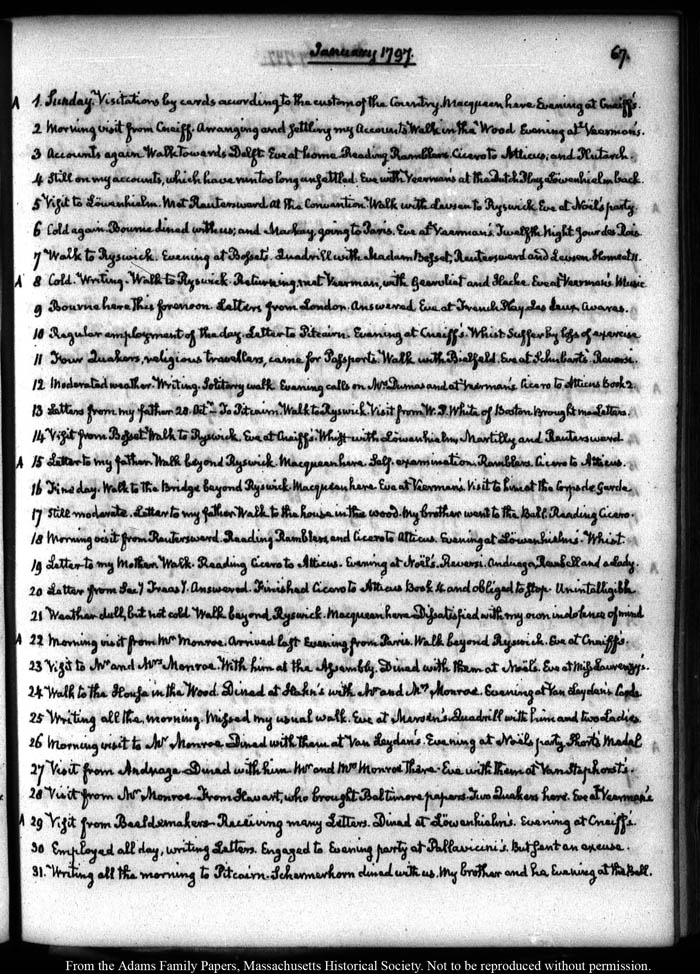 January 1797.
67.
A 1. Sunday. Visitations by cards according to the custom of the Country. Macqueen here. Evening at Cneiff's.
2 Morning visit from Cneiff. Arranging and settling my Accounts. Walk in the Wood. Evening at Veerman's.
3 Accounts again. Walk towards Delft. Eve at home. Reading Ramblers. Cicero to Atticus, and Plutarch.
4 Still on my accounts, which have run too long unsettled. Eve with Veerman's at the Dutch Play. Löwenhielm back.
5 Visit to Löwenhielm. Met Rautersward at the Convention. Walk with to Ryswick. Eve at Noël's party.
6 Cold again. Bourne dined with us; and Mackay, going to Paris. Eve at Veerman's. Twelfth Night. Jour des Rois.
7 Walk to Ryswick. Evening at Bosset's. Quadrill with Madam Bosset, Reutersward and
A 8 Cold. Writing. Walk to Ryswick. Returning, met Veerman, with and Eve at Veerman's. Music
9 Bourne here this forenoon. Letters from London. Answered. Eve at French Play. Les deux Avares.
10 Regular employment of the day. Letter to Pitcairn. Evening at Cneiff's. Whist. Suffer by loss of exercise
11 Four Quakers, religious travellers, came for Passports. Walk with Bielfeld. Eve at Schubart's. Reversi.
12 Moderated weather. Writing. Solitary walk. Evening calls on Mrs. Dumas and at Veerman's. Cicero to Atticus Book 2.
13 Letters from my father 28. Octr. To Pitcairn. Walk to Ryswick. Visit from W. P. White of Boston. Brought me Letters.
14 Visit from Bosset. Walk to Ryswick. Eve at Cneiff's. Whist with Löwenhielm, Martilly and Reutersward
A 15 Letter to my father. Walk beyond Ryswick. Macqueen here. Self-examination. Ramblers. Cicero to Atticus.
16 Fine day. Walk to the Bridge beyond Ryswick. Macqueen here. Eve at Veerman's. Visit to him at the Corps de Garde.
17 Still moderate. Letter to my father. Walk to the house in the wood. My brother went to the Ball. Reading Cicero.
18 Morning visit from Rautersward. Reading Ramblers, and Cicero to Atticus. Evening at Löwenhielm's. Whist.
19 Letter to my Mother. Walk. Reading Cicero to Atticus. Evening at Noël's. Reversi. Anduaga, and a Lady.
20 Letter from Secy. Treasy. Answered. Finished Cicero to Atticus Book 4 and obliged to stop. Unintelligible
21 Weather dull, but not cold. Walk beyond Ryswick. Macqueen here. Dissatisfied with my own indolence of mind
A 22 Morning visit from Mr. Monroe. Arrived last evening from Paris. Walk beyond Ryswick. Eve at Cneiff's.
23 Visit to Mr. and Mrs. Monroe. With him at the Assembly. Dined with them at Noël's. Eve at Miss
24 Walk to the House in the Wood. Dined at Hahn's with Mr. and Mrs. Monroe. Evening at Van Leyden's
25 Writing all the morning. Missed my usual walk. Eve at Mersen's. Quadrill with him and two Ladies.
26 Morning visit to Mr. Monroe. Dined with them at Van Leyden's. Evening at Noël's party. Short's Medal
27 Visit from Anduaga. Dined with him. Mr. and Mrs. Monroe there. Eve with them at Van Staphorst's.
28 Visit from Mr. Monroe. From who brought Baltimore papers. Two Quakers here. Eve at Veerman's
A 29 Visit from Beeldemaker. Receiving many Letters. Dined at Löwenhielm's. Evening at Cneiff's.
30 Employed all day, writing Letters. Engaged to Evening party at Pallavicini's. But sent an excuse.
31. Writing all the morning to Pitcairn. Schermerhorn dined with us. My brother and he, Evening at the Ball.
From the Adams Family Papers, Massachusetts Historical Society. Not to be reproduced without permission.